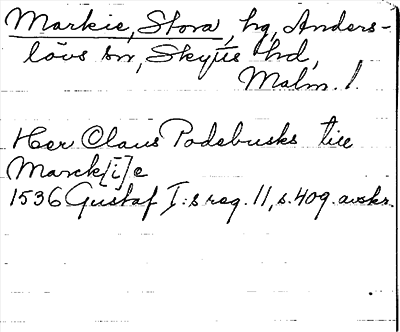 Markie, Stora, hg, Anders-
lövs sn, Skytts hd,
Malm. l.
Her Claus Podebusks till
Marck[i]e
1536 Gustaf I:s reg. 11, s. 409. avskr.